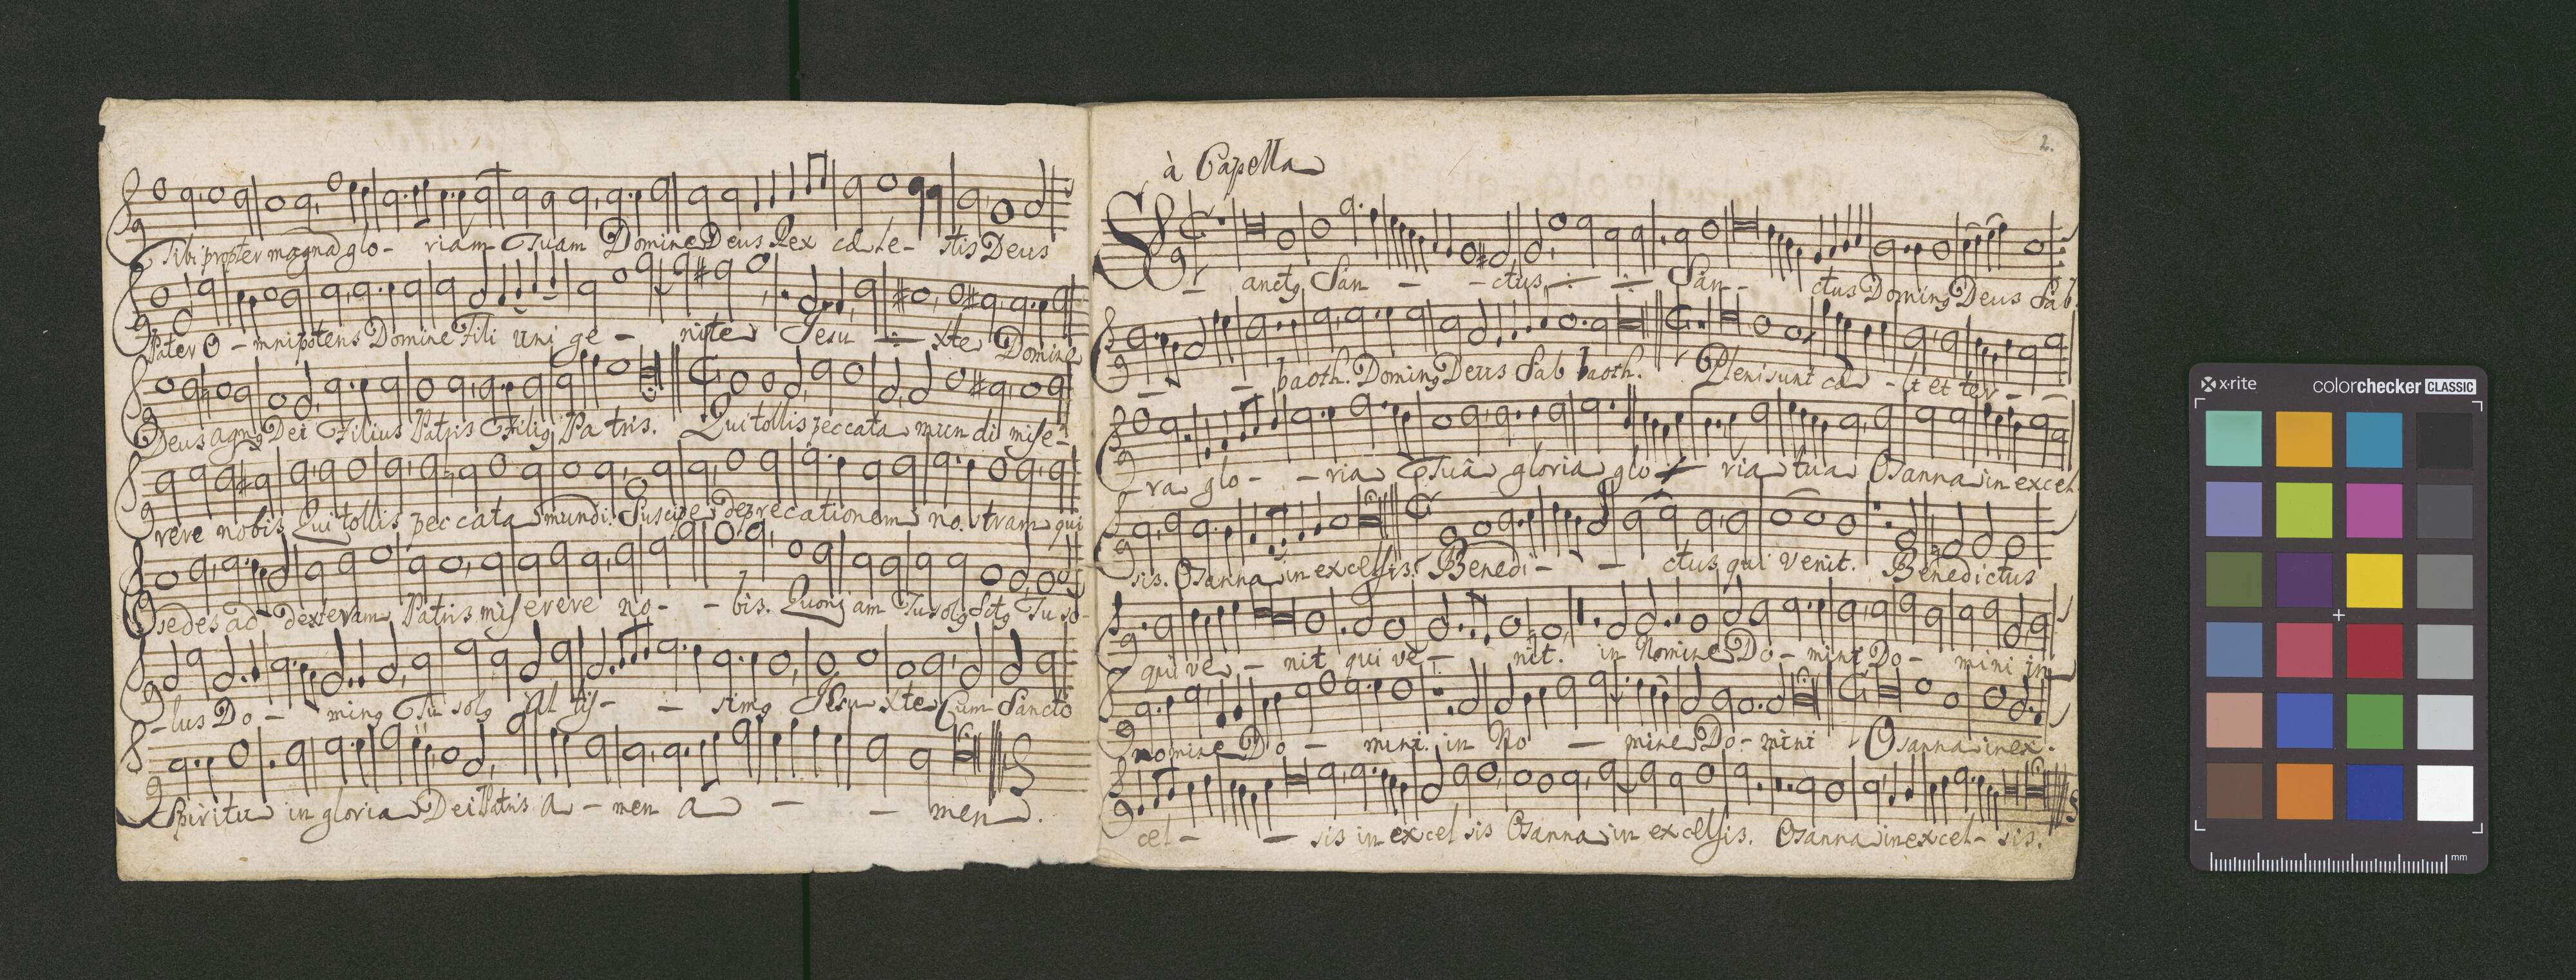 Tibi propter magnã glo- riam Tuam Domine Deus Rex cœle- stis Deus
Pater O- mnipotens Domine Fili uni ge- nite Jesu ÷ xte Domine
Deus agnq Dei Filius Patris Filiq Pa tris. Qui tollis peccata mun di mise-
rere nobis. Qui tollis peccata mundi. Suscipe deprecationem no. stram qui
sedes ad dexteram Patris miserere no- - bis. Quoniam Tu solq Sctq Tu so-
-lus Do- minq Tu solq Al tis- - simq Jesu xte Cum Sancto
Spiritu in gloria Dei Patris a- men a - - men.
2.
à Capella
Sanctq San - - ctus ÷ ÷ San- - ctus Dominq Deus Sab.
- baoth. Dominq Deus Sab baoth. Pleni sunt cœ- li et ter-
ra glo- - ria Tuâ gloria glo ria tua Osanna in excel
sis. Osanna in excelsis. Benedi- - ctus qui venit. Benedictus
qui ve- nit qui ve- nit. in Nomine Do- mini Do- mini in
nomine Do- mini. in No - mine Do- mini Osanna in ex.
cel- - sis in excel sis Osanna in excelsis. Osanna in excel- sis.
x-rite
colorchecker CLASSIC
mm